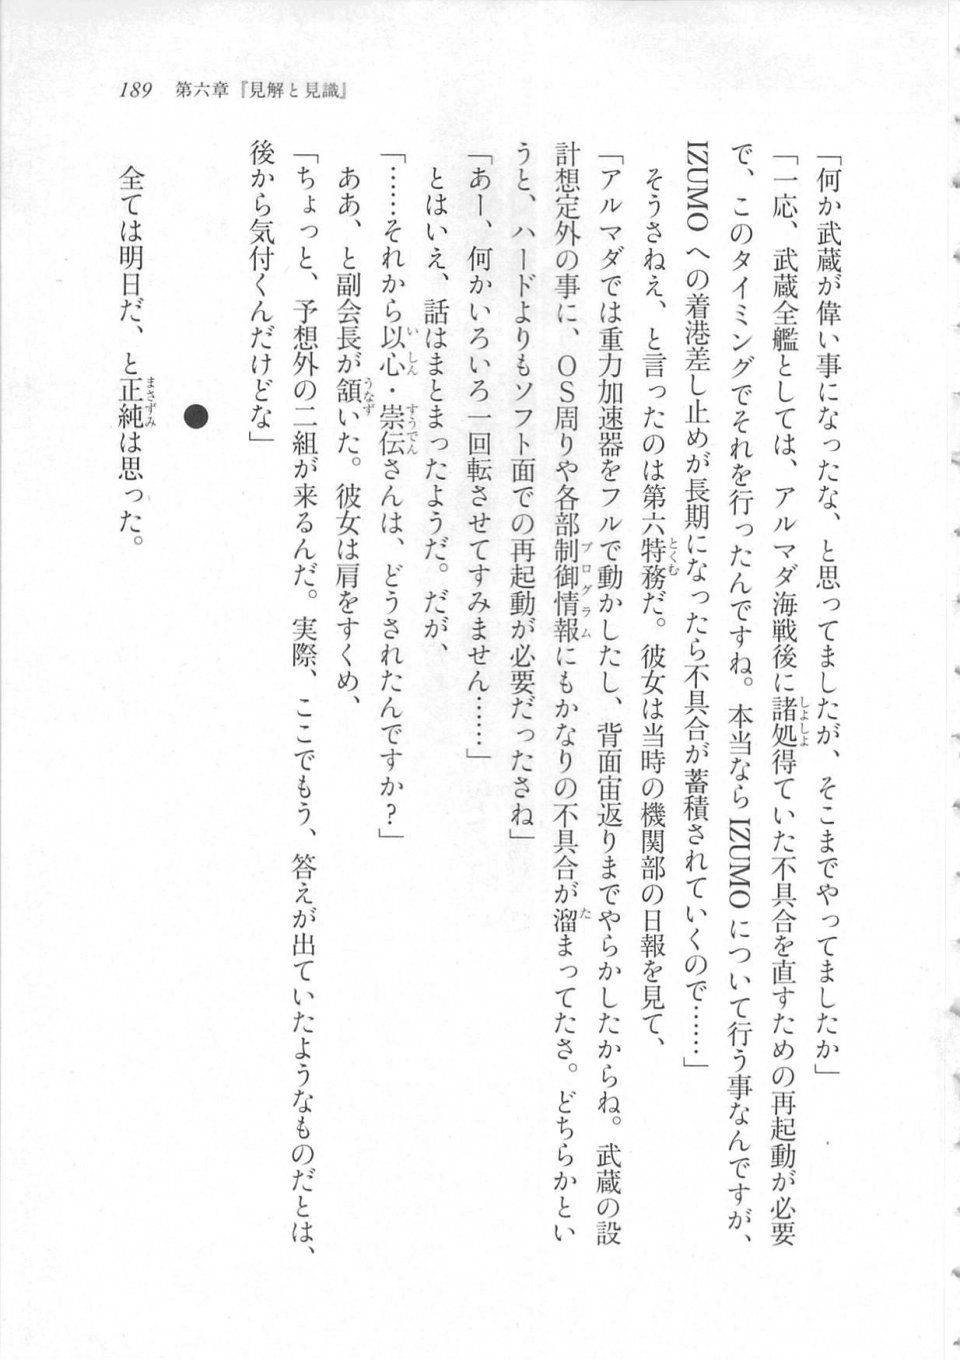 189 第六章『見解と見識』
「何か武蔵が偉い事になったな、と思ってましたが、そこまでやってましたか」
「一応、武蔵全艦としては、アルマダ海戦後に諸処得ていた不具合を直すための再起動が必要
で、このタイミングでそれを行ったんですね。本当ならIZUMOについて行う事なんですが、
IZUMOへの着港差し止めが長期になったら不具合が蓄積されていくので……」
そうさねえ、と言ったのは第六特務だ。彼女は当時の機関部の日報を見て、
「アルマダでは重力加速器をフルで動かしたし、背面宙返りまでやらかしたからね。武蔵の設
計想定外の事に、OS周りや各部制御情報にもかなりの不具合が溜まってたさ。どちらかとい
うと、ハードよりもソフト面での再起動が必要だったさね」
「あー、何かいろいろ一回転させてすみません……」
とはいえ、話はまとまったようだ。だが、
「……それから以心・崇伝さんは、どうされたんですか?」
ああ、と副会長が頷いた。彼女は肩をすくめ、
「ちょっと、予想外の二組が来るんだ。実際、ここでもう、答えが出ていたようなものだとは、
後から気付くんだけどな」
●
全ては明日だ、と正純は思った。